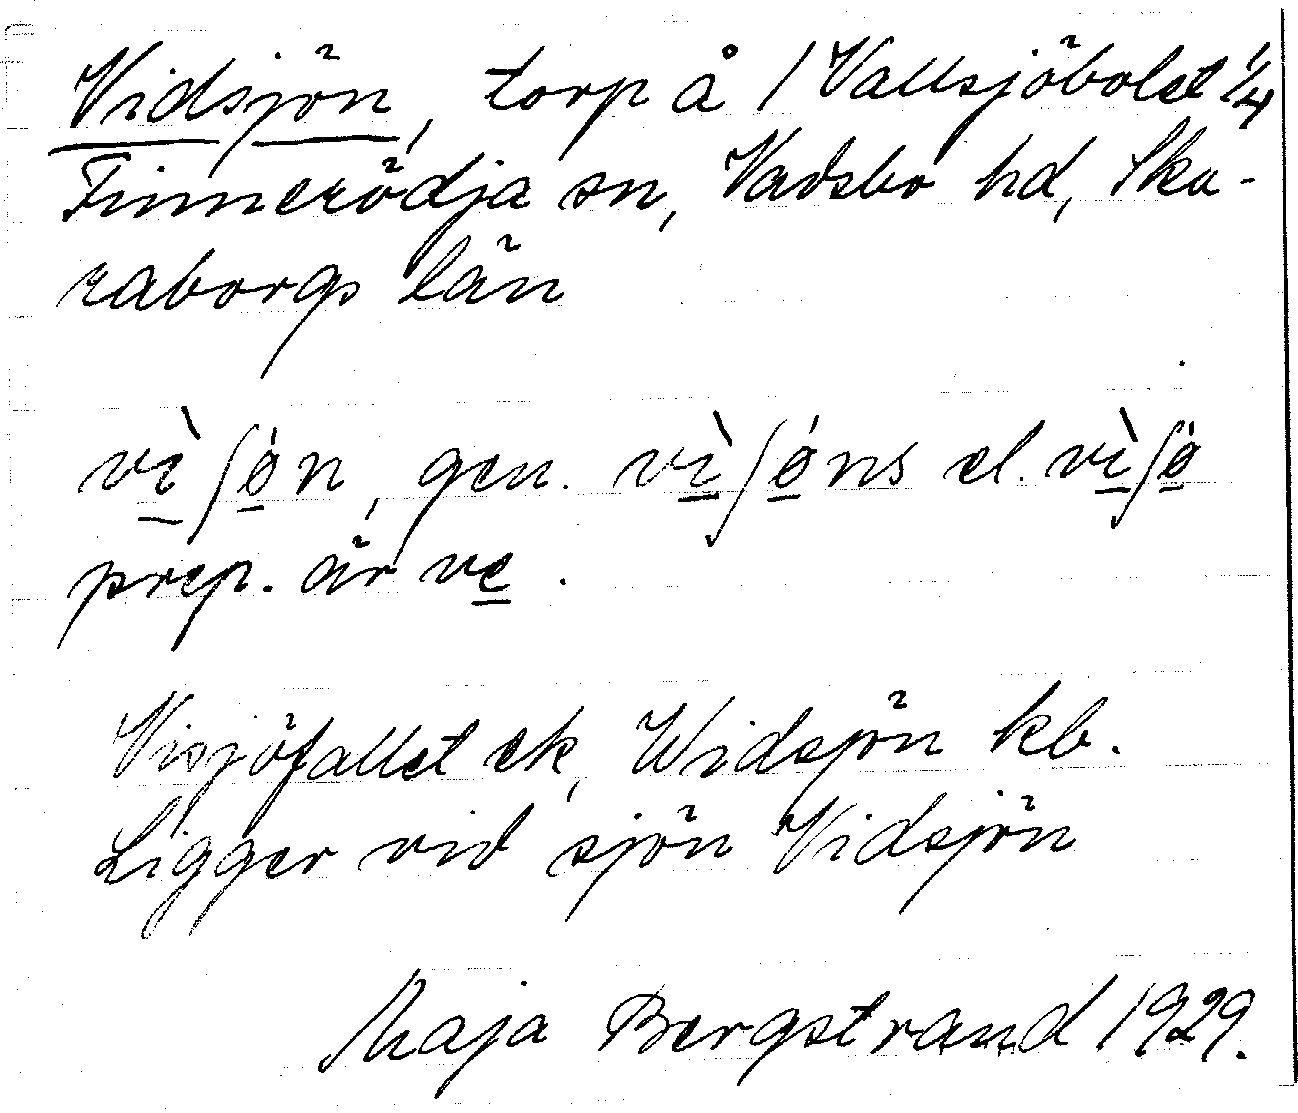 Vidsjön, torp å 1 Vallsjöbolet 1/4
Finnerödja sn, Vadsbo hd, Ska-
raborgs län
vìʃón, gen. vìʃóns el. vìʃó
prep. är ve.
Visjöfallet ek, Widsjön kb.
Ligger vid sjön Vidsjön
Maja Bergstrand 1929.